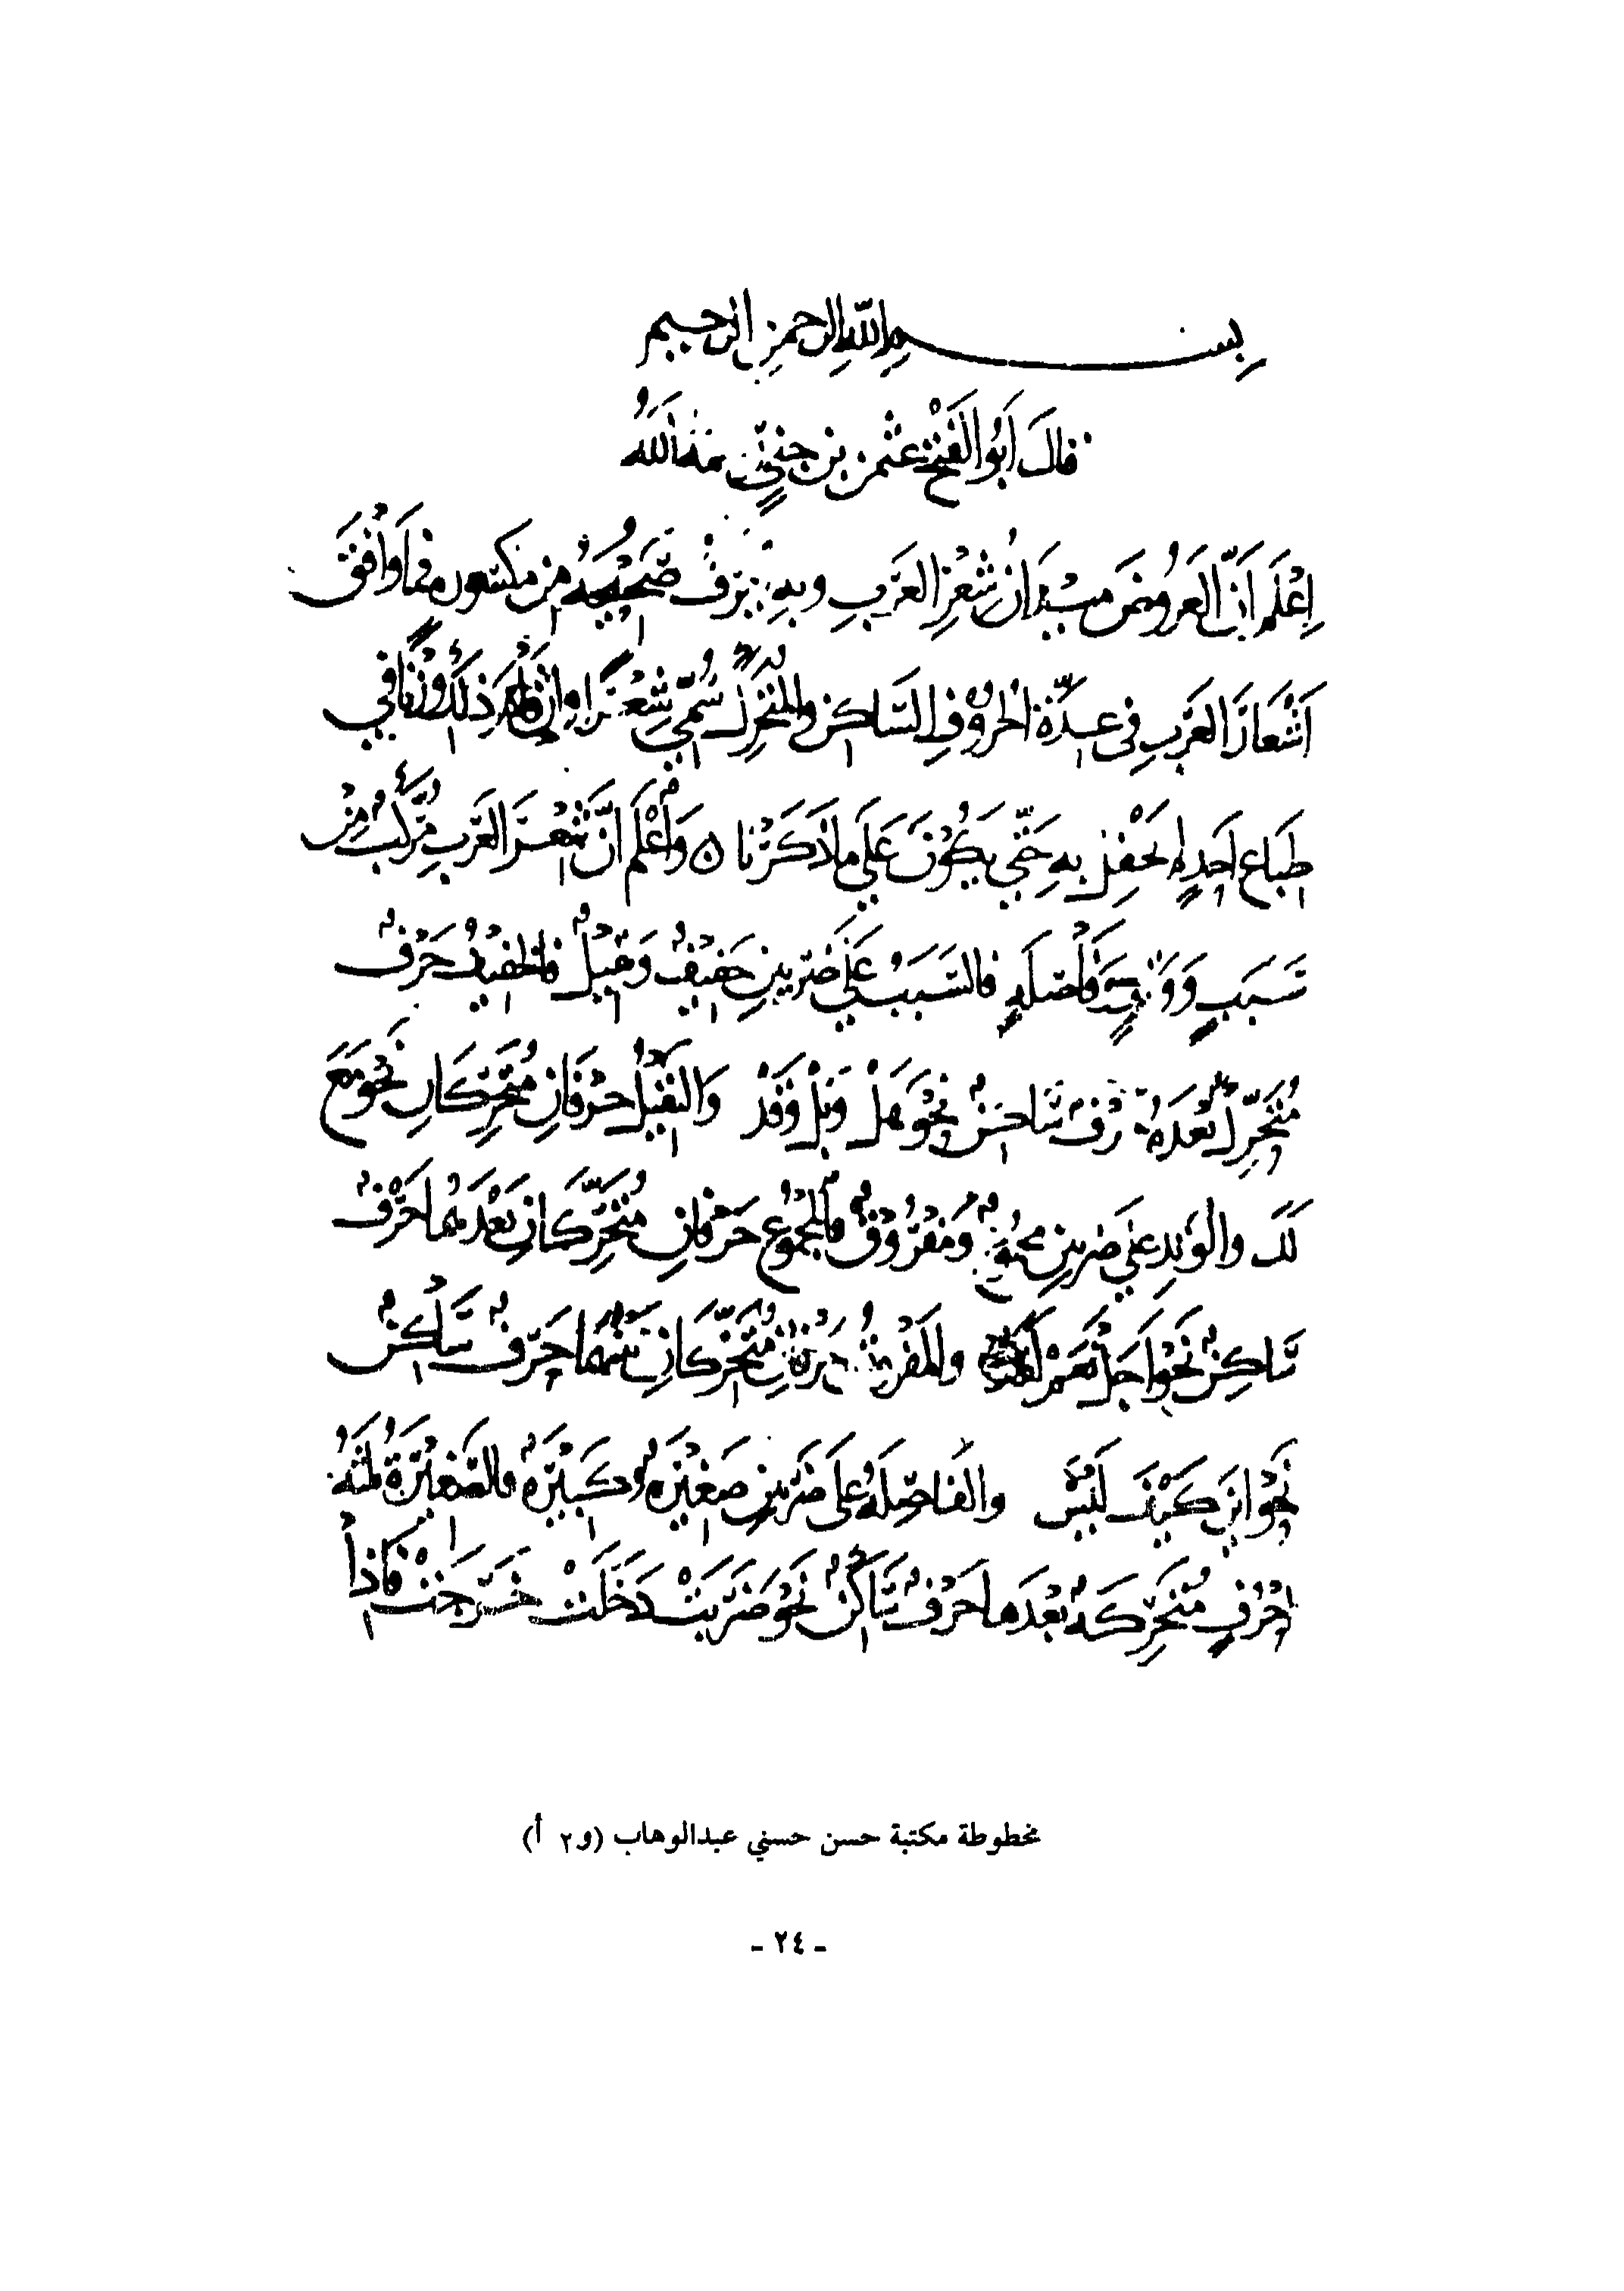 بسم الله الرحمن الرحيم
قَالَ أَبُو الْفَتْحِ عُثْمٰن بن جِنِّيٍّ رحمه اللهُ
اِعْلَم أَنَّ العَرُوضَ مِيزَانُ شِعْرِ العَرَبِ وبِهِ يُعْرَفُ صَحِيحُهُ مِن مكسُورِهِ فمَا وَافَقَ
أَشْعَارَ العَرَبِ فِي عِدَّةِ الحُرُوفِ السَّاكِنِ والمتَحَرِّكِ سُمِّيَ شِعْرًا وإنْ ذَلِكَ وَزْنًا في
طِبَاعِ أَحَدٍ لم يُحْفَلْ بهِ حَتَّى يَكُونَ عَلَى مَا ذَكَرْنَا ن وَاعْلَم أَنَّ شِعْرَ العَرَبِ مُرَكَّبٌ مِنْ
سَبَبٍ وَوَتِدٍ وَفَاصِلَةٍ فالسَّبَبُ عَلَى ضَرْبَيْنِ خَفِيفٌ وَثَقِيلٌ فَالخَفِيفُ حَرْفٌ
مُتَحَرِّكٌ بَعْدَهُ حَرْفٌ سَاكِنٌ نَحْو هَلْ وَبَلْ وَقَدْ وَالثَّقِيلُ حَرْفَانِ مُتَحَرِّكَانِ نَحْو مَعَ
لَكَ والوَتِدِ على ضربين مجمُوعٌ وَمَفْرُوقٌ فَالمجْمُوعُ حَرْفَانِ مُتَحَرِّكَانِ بَعْدَهُمَا حَرْفٌ
سَاكِنٌ نَحْو أَجَلْ نَعَمْ والمَفْرُوقُ حَرْفَانِ مُتَحَرِّكَانِ بَيْنَهُمَا حَرْفٌ سَاكِنٌ
نَحْوُ أَيْنَ كَيْفَ لَيْسَ والفَاصِلَةُ عَلَى ضَرْبَيْنِ صَغِيْرَةٌ وكَبِيْرَةٌ فالصَّغِيْرَةُ ثَلثَةُ
أَحْرُفٍ مُتَحَرِّكَةٌ بَعْدَها حَرْفٌ سَاكِنٌ نَحْوَ ضَرَبَتْ دَخَلَتْ خَرَجَتْ فَإِذَا
مخطوطة مكتبة حسن حسني عبدالوهاب (و٢ أ)
ـ ٢٤ ـ